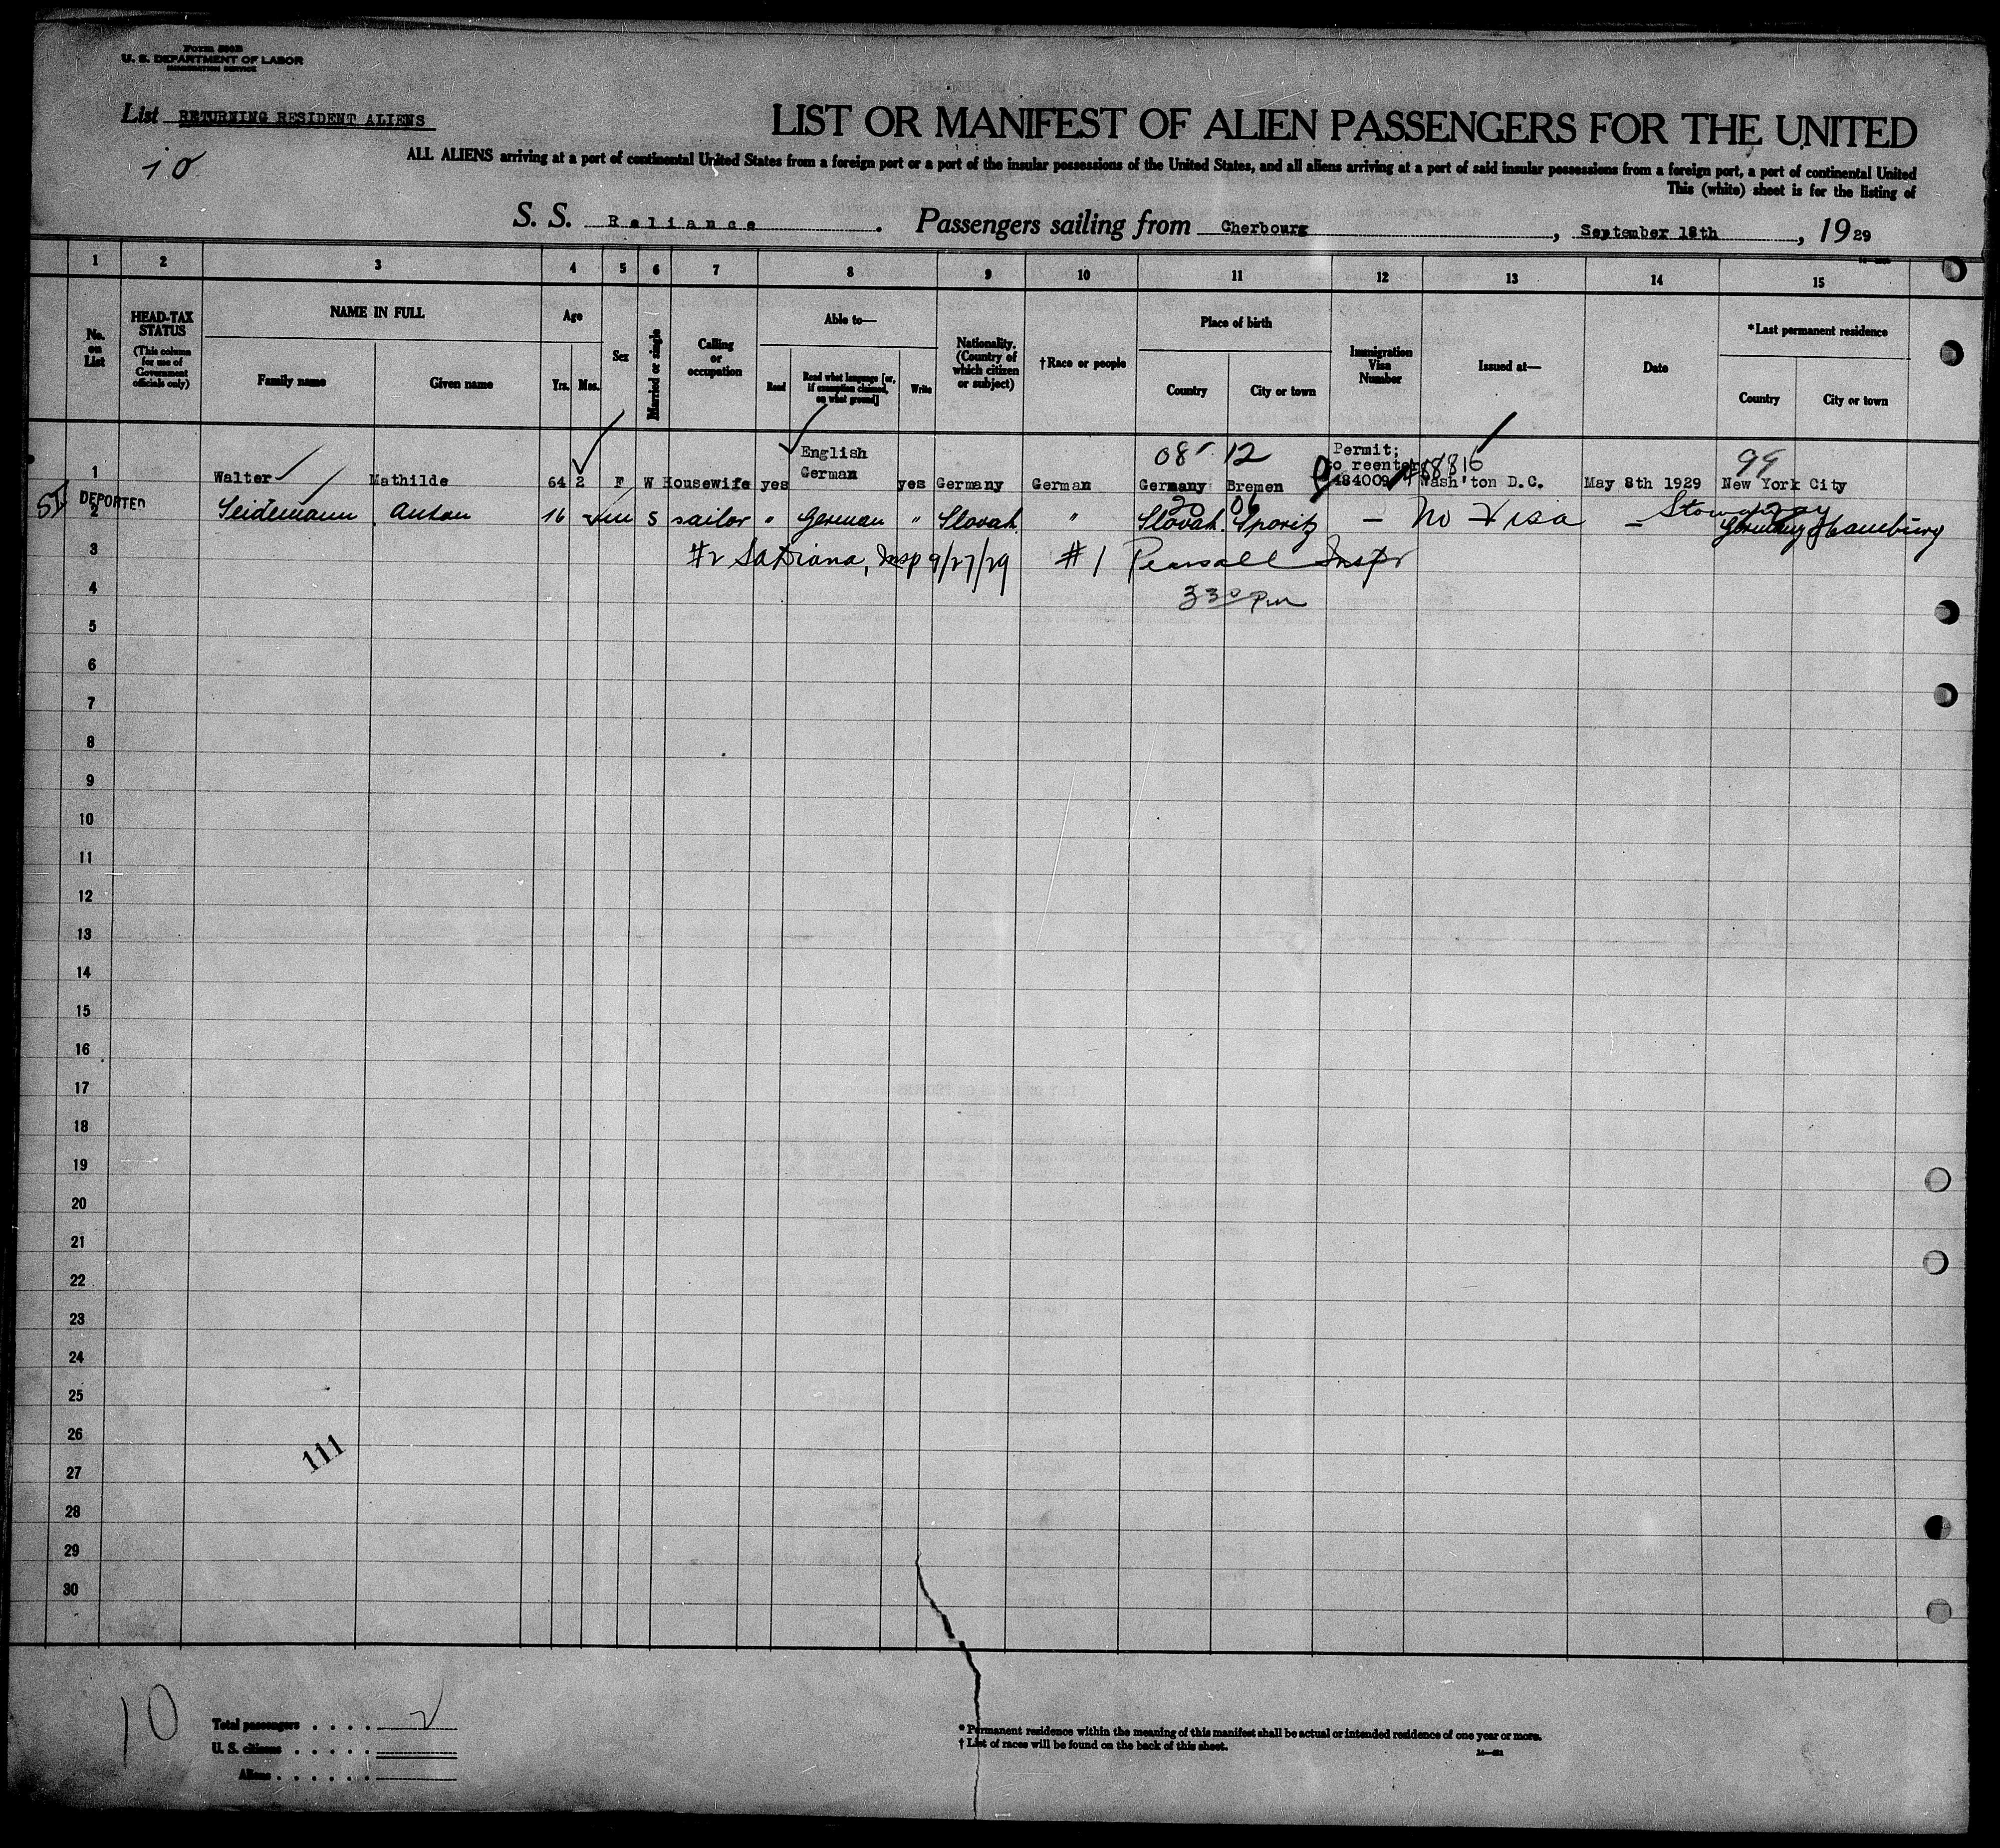 Form 500B
U. S. DEPARTMENT OF LABOR
IMMIGRATION SERVICE
List RETURNING RESIDENT ALIENS
10
LIST OR MANIFEST OF ALIEN PASSENGERS FOR THE UNITED
ALL ALIENS arriving at a port of continental United States from a foreign port or a port of the insular possessions of the United States, and all aliens arriving at a port of said insular possessions from a foreign port, a port of continental United
This (white) sheet is for the listing of
S. S. Reliance. Passengers sailing from Cherbourg, September 18th, 1929
1 2 3 4 5 6 7 8 9 10 11 12 13 14 15
No. on List
HEAD-TAX STATUS
(This column for use of Government officials only)
NAME IN FULL
Family name
Given name
Age
Yrs. Mos.
Sex
Married or single
Calling or occupation
Able to—
Read
Read what language [or, if exemption claimed, on what ground]
Write
Nationality. (Country of which citizen or subject)
†Race or people
Place of birth
Country
City or town
Immigration Visa Number
Issued at—
Date
*Last permanent residence
Country
City or town
08 12 99
1 Walter Mathilde 64 2 F W Housewife yes English German yes Germany German Germany Bremen Permit; to reenter 484009 Wash'ton D.C. May 8th 1929 New York City
DEPORTED
20 06 Stowaway
2 Seidemann Anton 16 m S sailor " German " Slovak. " Slovak. Sporitz — No Visa — Germany Hamburg
3 #2 SaDiana, Insp 9/27/29 #1 Pearsall Inspr
4 3 30 Pm
5
6
7
8
9
10
11
12
13
14
15
16
17
18
19
20
21
22
23
24
25
26
27
28
29
30
111
10
Total passengers . . . . 2
U. S. citizens . . . . .
Aliens . . . . . .
* Permanent residence within the meaning of this manifest shall be actual or intended residence of one year or more.
† List of races will be found on the back of this sheet.